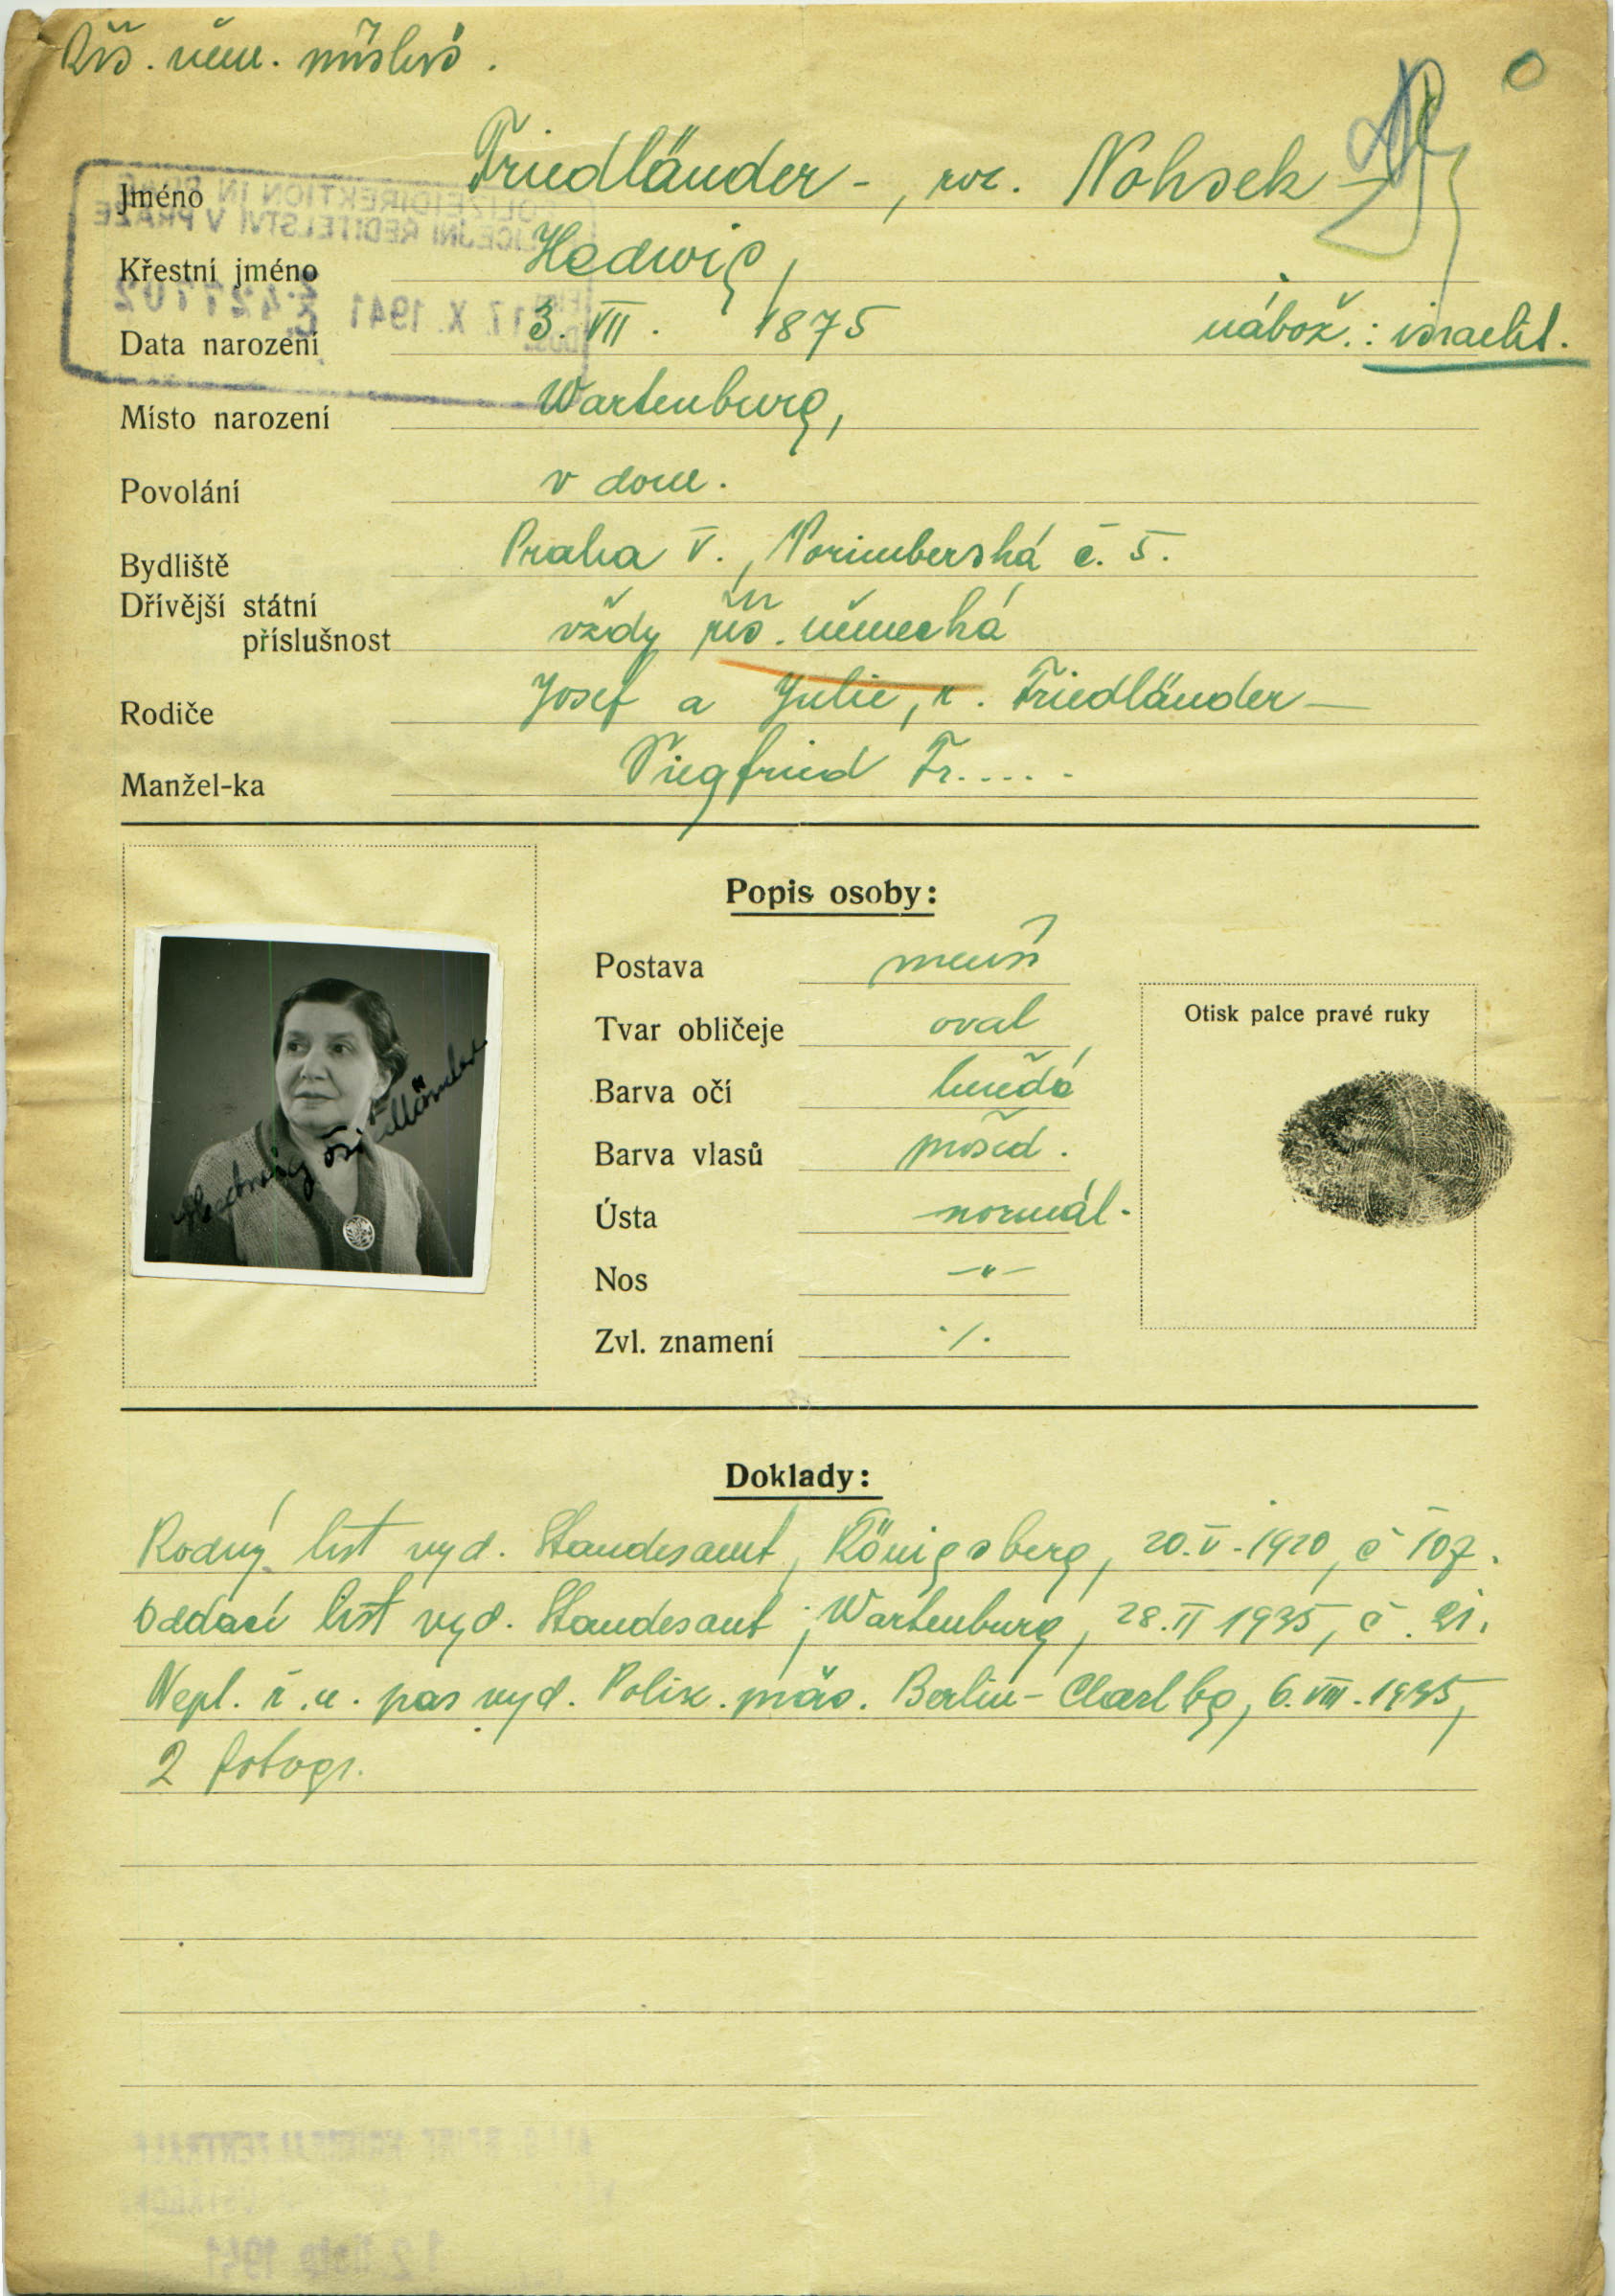 Říš. něm. přísluš.
Jméno Friedländer -, roz. Nohsek -
Křestní jméno Hedwig,
Data narození 3. VII. 1875 nábož.: israelit.
Místo narození Wartenburg,
Povolání v dom.
Bydliště Praha V., Norimberská č. 5.
Dřívější státní
příslušnost vždy říš. německá
Rodiče Josef a Julie, r. Friedländer —
Manžel-ka Siegfried Fr.....
Popis osoby:
Postava menší
Tvar obličeje oval
Barva očí hnědá
Barva vlasů prošed.
Ústa normál.
Nos —"—
Zvl. znamení ·/.
Otisk palce pravé ruky
Hedwig Friedländer
POLIZEIDIREKTION IN PRAG
POLICEJNÍ ŘEDITELSTVÍ V PRAZE
17. X. 1941
Doklady:
Rodný list vyd. Standesamt, Königsberg, 20.V.1920, č 107.
Oddací list vyd. Standesamt, Wartenburg, 28.II 1935, č. 21.
Nepl. ř. n. pas vyd. Polix. präs. Berlin-Charlbg, 6.VIII.1935,
2 fotogr.
1941